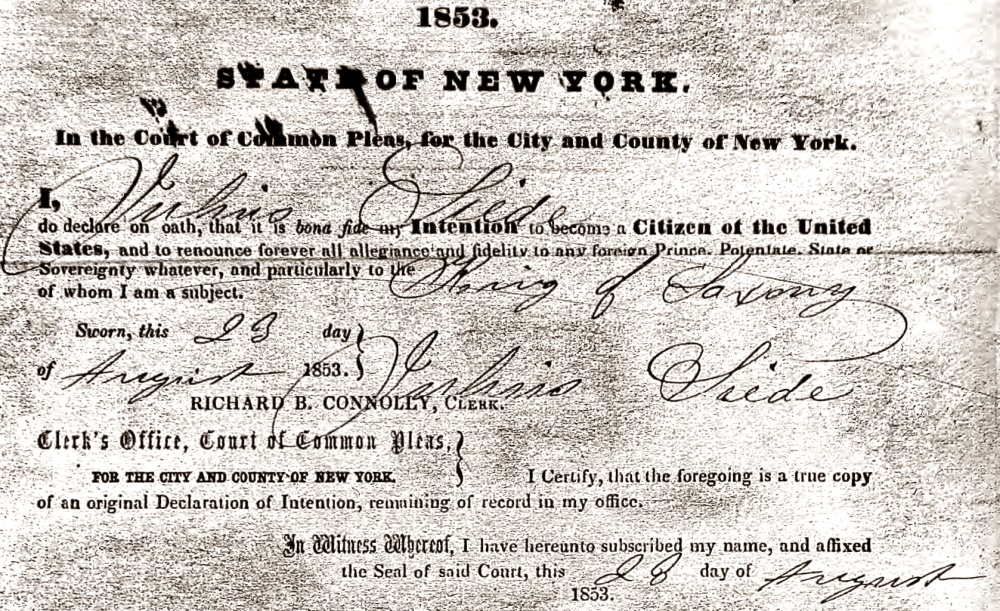 1853.
STATE OF NEW YORK.
In the Court of Common Pleas, for the City and County of New York.
I, Julius Siede
do declare on oath, that it is bona fide my Intention to become a Citizen of the United
States, and to renounce forever all allegiance and fidelity to any foreign Prince, Potentate, State or
Sovereignty whatever, and particularly to the King of Saxony
of whom I am a subject.
Sworn, this 23 day
of August 1853. Julius Siede
RICHARD B. CONNOLLY, CLERK.
Clerk's Office, Court of Common Pleas,
FOR THE CITY AND COUNTY OF NEW YORK.
I Certify, that the foregoing is a true copy
of an original Declaration of Intention, remaining of record in my office.
In Witness Whereof, I have hereunto subscribed my name, and affixed
the Seal of said Court, this 23 day of August
1853.